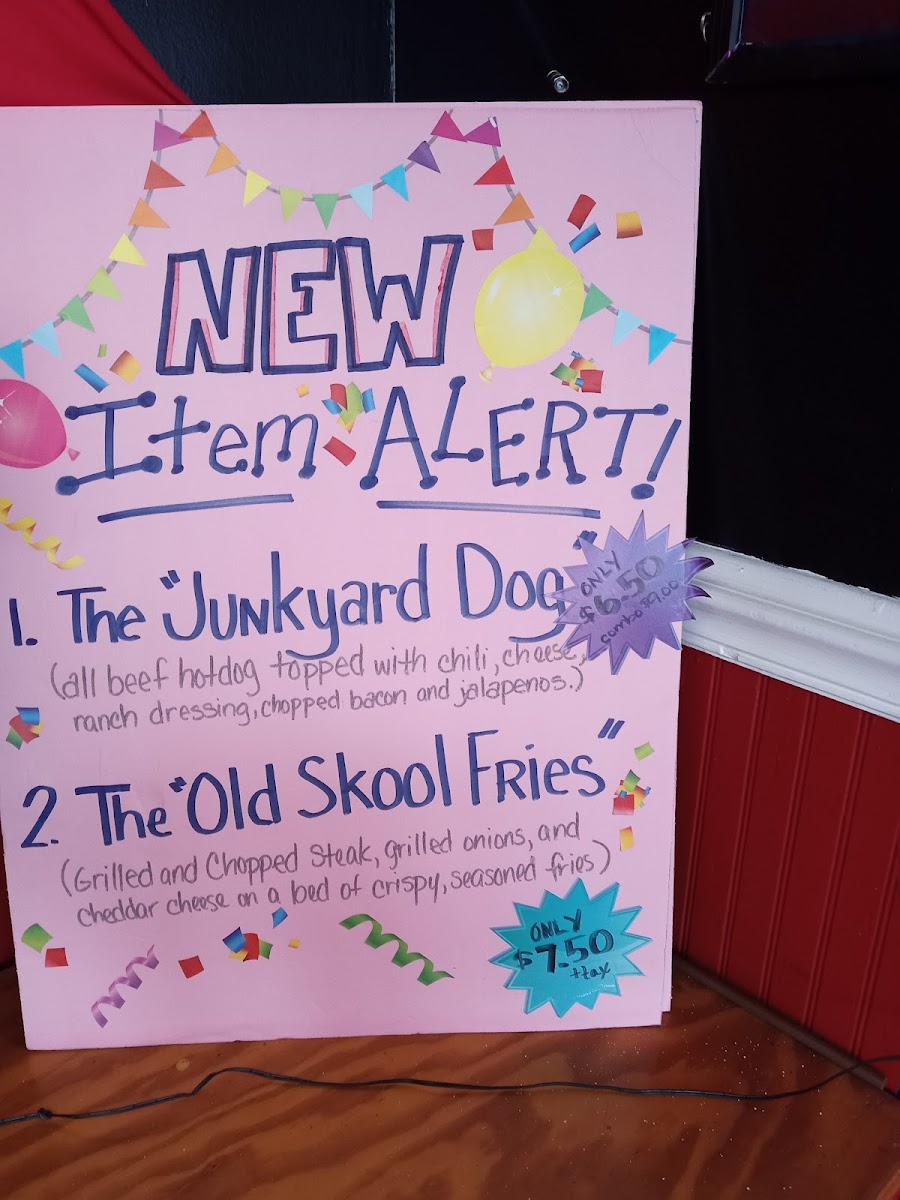 NEW
Item ALERT!
1. The "Junkyard Dog"
ONLY
$6.50
combo $9.00
(all beef hotdog topped with chili, cheese,
ranch dressing, chopped bacon and jalapenos.)
2. The "Old Skool Fries"
(Grilled and Chopped Steak, grilled onions, and
cheddar cheese on a bed of crispy, seasoned fries)
ONLY
$7.50
+tax